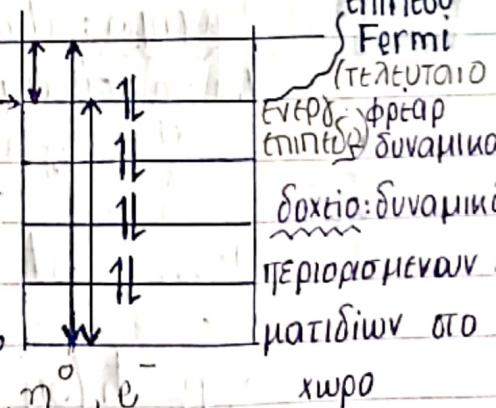 επιπεδο
Fermi
(τελευταιο
ενεργ. φρεαρ
επιπεδο) δυναμικο
δοχειο: δυναμικο
περιορισμενουν
ματιδίων στο
χωρο
n⁰, e⁻